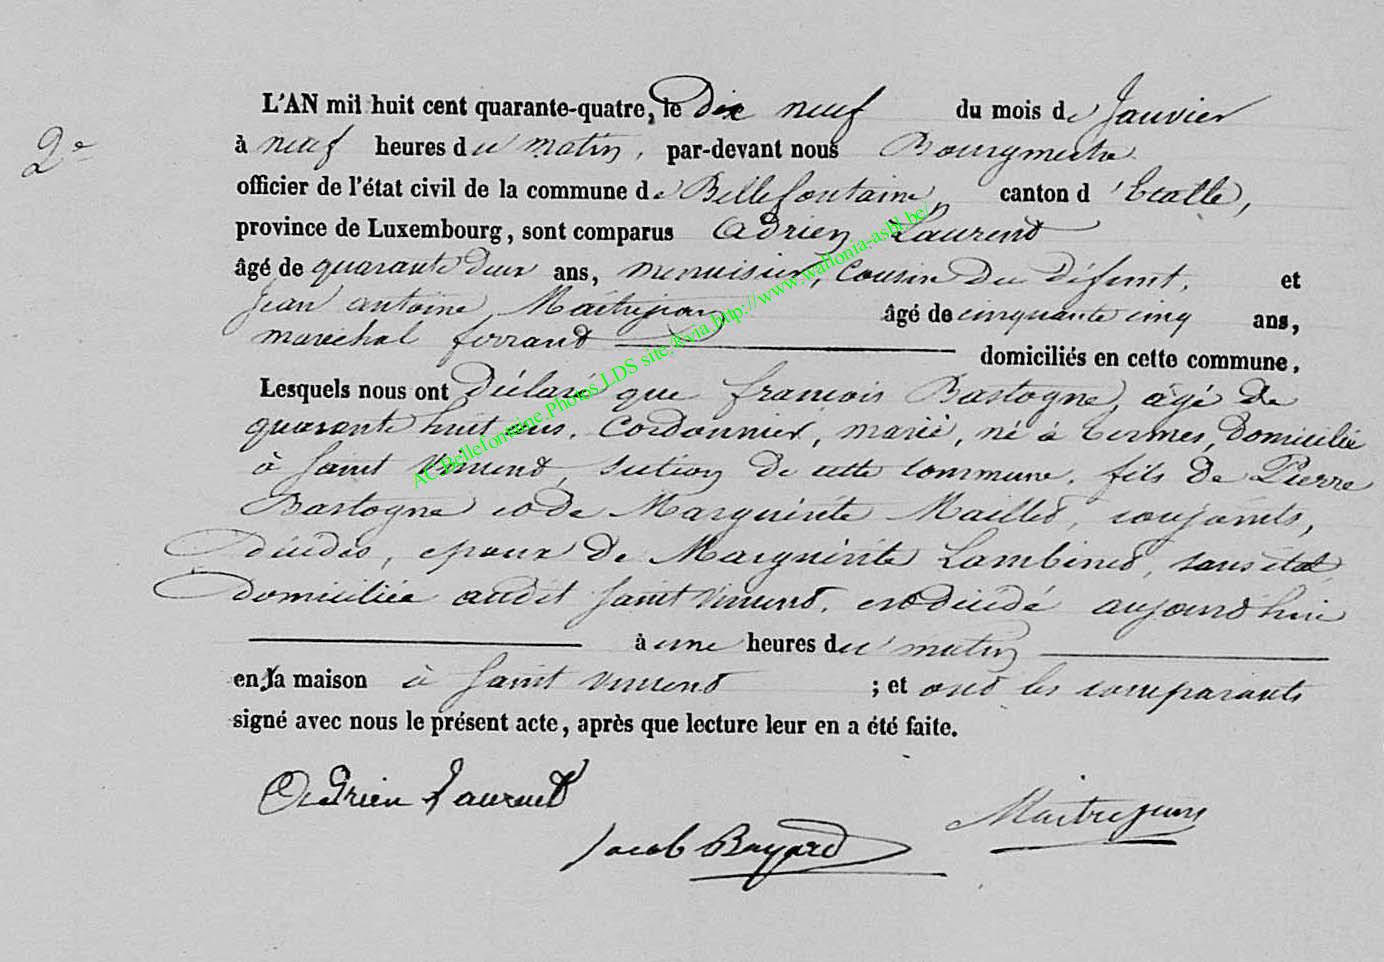 L'AN mil huit cent quarante-quatre, le Dix neuf du mois de Janvier
2e
à neuf heures du matin, par-devant nous Bourgmestre
officier de l'état civil de la commune de Bellefontaine, canton d'Etalle,
province de Luxembourg, sont comparus Adrien Laurent
âgé de quarante deux ans, menuisier, Cousin du défunt, et
Jean antoine Maitrejean âgé de cinquante cinq ans,
marechal ferrand domiciliés en cette commune,
Lesquels nous ont Déclaré que françois Bastogne, âgé de
quarante huit ans, Cordonnier, marié, né à termes, Domicilié
à Saint Vincent, section de cette commune, fils de Pierre
Bastogne et de Marguerite Maillet, conjoints,
décédés, epoux de Marguerite Lambinet, sans état
Domiciliée audit Saint Vincent, est décédé aujourd'hui
à une heures du matin
en sa maison à Saint Vincent ; et ont les comparants
signé avec nous le présent acte, après que lecture leur en a été faite.
Adrien Laurent
Maitrejean
Jacob Bayard
AC Bellefontaine. Photos LDS site, via http://www.wallonia-asbl.be/